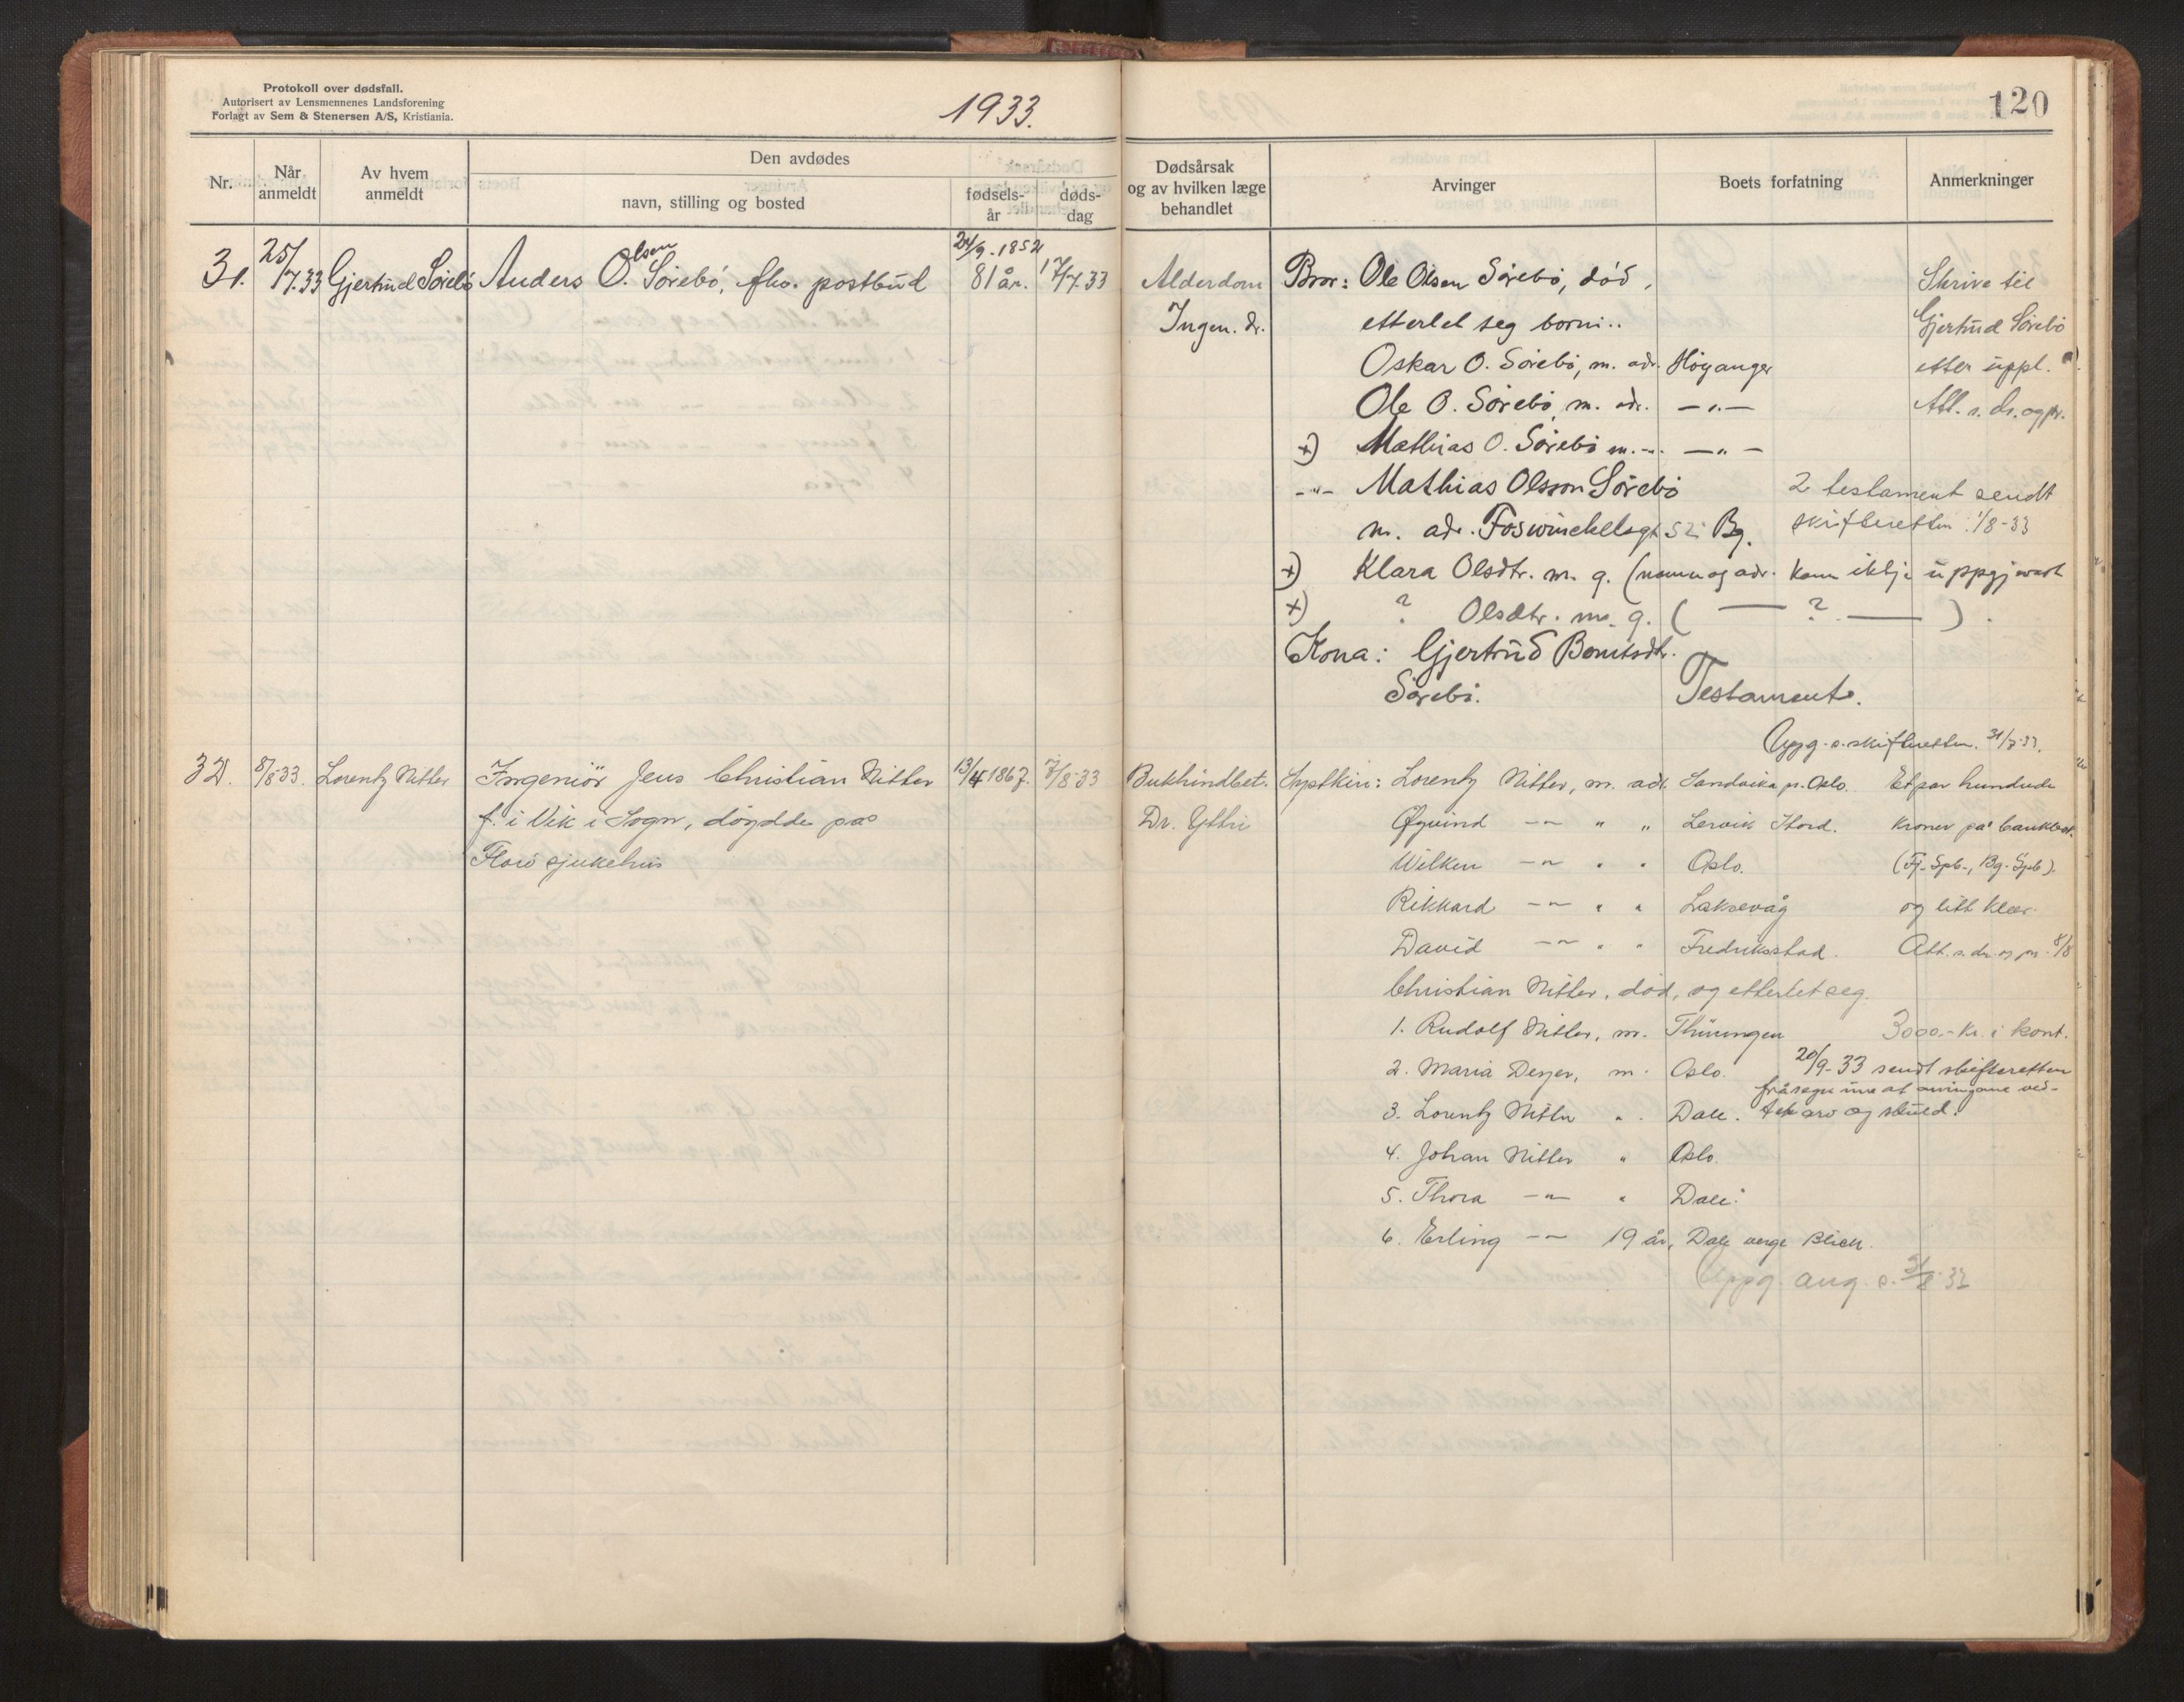 Protokoll over dødsfall.
Autorisert av Lensmennenes Landsforening
Forlagt av Sem & Stenersen A/S, Kristiania.
1933.
120
Nr.
Når anmeldt
Av hvem anmeldt
Den avdødes
navn, stilling og bosted
fødsels-år
døds-dag
Dødsårsak og av hvilken læge behandlet
Arvinger
Boets forfatning
Anmerkninger
31. 25/7.33 Gjertrud Sørebø Anders O. Olsen Sørebø, fhv. postbud 24/9.1852 81 år. 17/7.33
Alderdom
Ingen. dr.
Bror: Ole Olsen Sørebø, død,
etterlet seg borni..
Oskar O. Sørebø, m. adr. Höyanger
Ole O. Sørebø, m. adr. —"—
+) Mathias O. Sørebø m. -"- —"—
-"- Mathias Olsson Sørebø
m. adr. Foswinckelsgt 52 Bg.
+) Klara Olsdtr. m. g. (namn og adr. kann ikkje uppgjevast
+) ? Olsdtr. m. g. ( — ? — ).
Kona: Gjertrud Bentsdtr.
Sørebø. Testament.
2 testament sendt
skifteretten 1/8-33
Skrive til
Gjertrud Sørebø
etter uppl.
Att. s. ds. og pr.
Uppg. s. skifteretten. 31/7-33.
32. 8/8-33. Lorentz Nitter Ingeniör Jens Christian Nitter 13/4 1867. 7/8-33
f. i Vik i Sogn, döydde på
Florö sjukehus
Bukhindbet.
Dr. Yttri
Syskin: Lorentz Nitter, m. adr. Sandvika pr. Oslo.
Øyvind —"— " " Lervik Stord.
Wilken —"— " " Oslo.
Rikkard —"— " " Laksevåg
David —"— " " Fredriksstad.
Christian Nitter, död, og etterlet seg.
1. Rudolf Nitter, m. Thüringen
2. Maria Deyer, m. Oslo.
3. Lorentz Nitter " Dale.
4. Johan Nitter " Oslo.
5. Thora —"— " Dale.
6. Erling —"— 19 år, Dale verge Blich.
Et par hundrede
kroner på bankbok.
(Fj. Spb., Bg. Spb).
og litt klær.
Att. s. dr. og pr. 8/8
3000.- kr. i kont.
20/9-33 sendt skifteretten
fråsegn um at arvingane ved-
tek arv og skuld.
Uppg. ang. s. 31/8-33